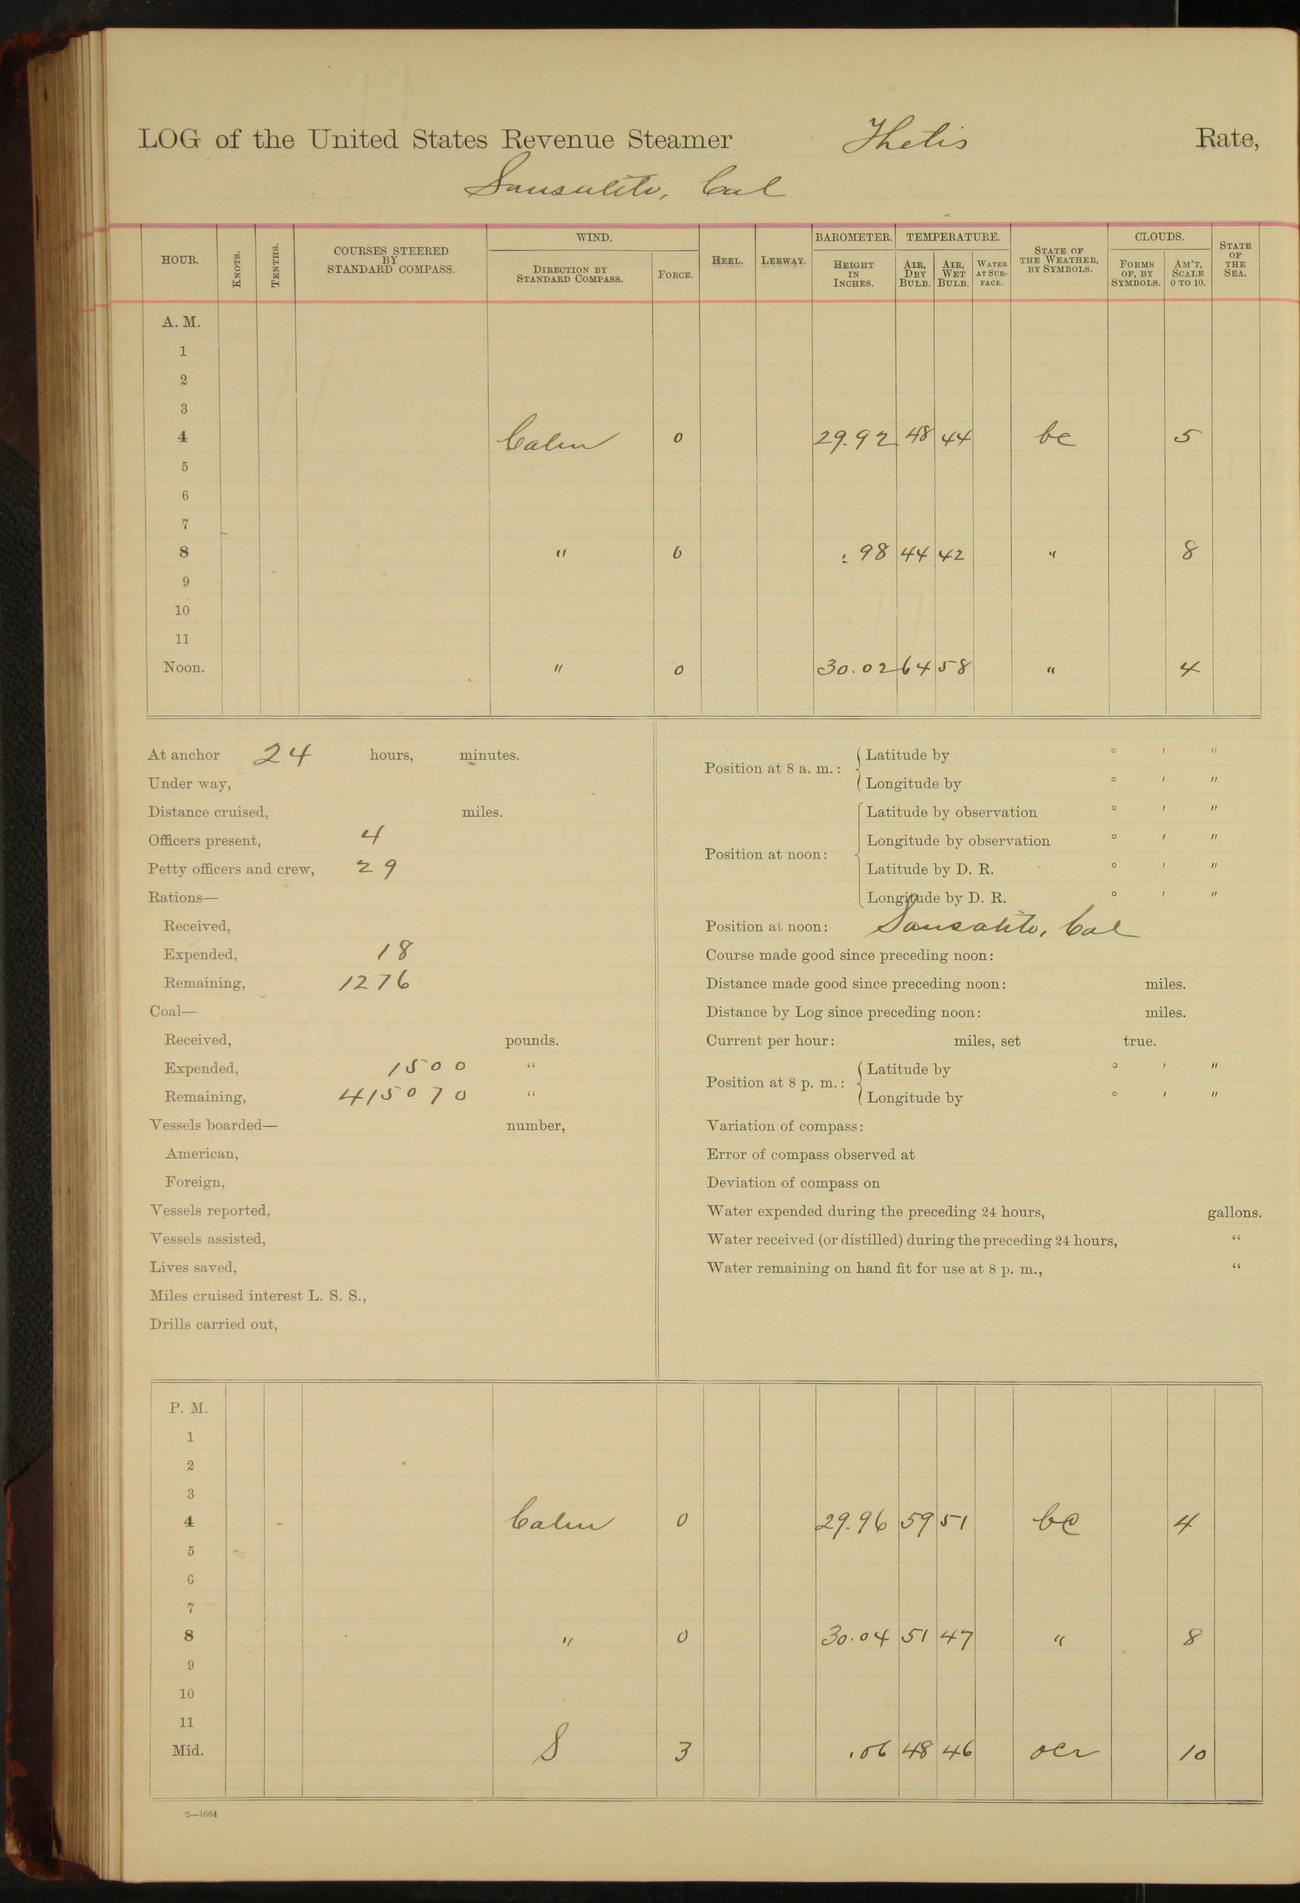 LOG of the United States Revenue Steamer Thetis Rate,
Sausalito, Cal
HOUR. KNOTS. TENTHS. COURSES STEERED BY STANDARD COMPASS. WIND. DIRECTION BY STANDARD COMPASS. FORCE. HEEL. LEEWAY. BAROMETER. HEIGHT IN INCHES. TEMPERATURE. AIR, DRY BULB. AIR, WET BULB. WATER AT SURFACE. STATE OF THE WEATHER, BY SYMBOLS. CLOUDS. FORMS OF, BY SYMBOLS. AM'T, SCALE 0 TO 10. STATE OF THE SEA.
A. M.
1
2
3
4 Calm 0 29.92 48 44 bc 5
5
6
7
8 " 0 : 98 44 42 " 8
9
10
11
Noon. " 0 30.02 64 58 " 4
At anchor 24 hours, minutes.
Under way,
Distance cruised, miles.
Officers present, 4
Petty officers and crew, 29
Rations—
Received,
Expended, 18
Remaining, 1276
Coal—
Received, pounds.
Expended, 1500 "
Remaining, 415070 "
Vessels boarded— number,
American,
Foreign,
Vessels reported,
Vessels assisted,
Lives saved,
Miles cruised interest L. S. S.,
Drills carried out,
Position at 8 a. m.: Latitude by ° ′ ″
Longitude by ° ′ ″
Position at noon: Latitude by observation ° ′ ″
Longitude by observation ° ′ ″
Latitude by D. R. ° ′ ″
Longitude by D. R. ° ′ ″
Position at noon: Sausalito, Cal
Course made good since preceding noon:
Distance made good since preceding noon: miles.
Distance by Log since preceding noon: miles.
Current per hour: miles, set true.
Position at 8 p. m.: Latitude by ° ′ ″
Longitude by ° ′ ″
Variation of compass:
Error of compass observed at
Deviation of compass on
Water expended during the preceding 24 hours, gallons.
Water received (or distilled) during the preceding 24 hours, "
Water remaining on hand fit for use at 8 p. m., "
P. M.
1
2
3
4 Calm 0 29.96 59 51 bc 4
5
6
7
8 " 0 30.04 51 47 " 8
9
10
11
Mid. S 3 .06 48 46 ocr 10
2—1664